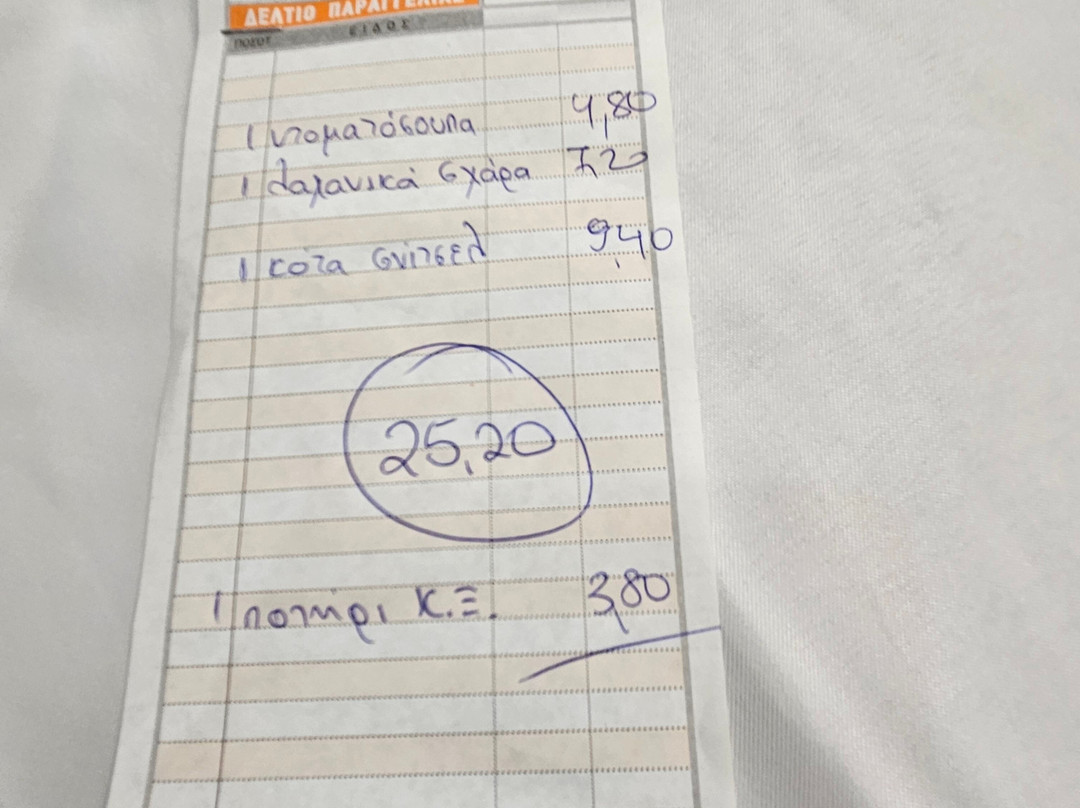 ΔΕΛΤΙΟ ΠΑΡΑΓΓΕΛΙΑΣ
ΠΟΣΟΤ. ΕΙΔΟΣ
1 ντοματόσουπα 4,80
1 λαχανικά σχάρα 7,20
1 κότα σνίτσελ 9,40
25,20
1 ποτήρι Κ.Ξ. 3,80